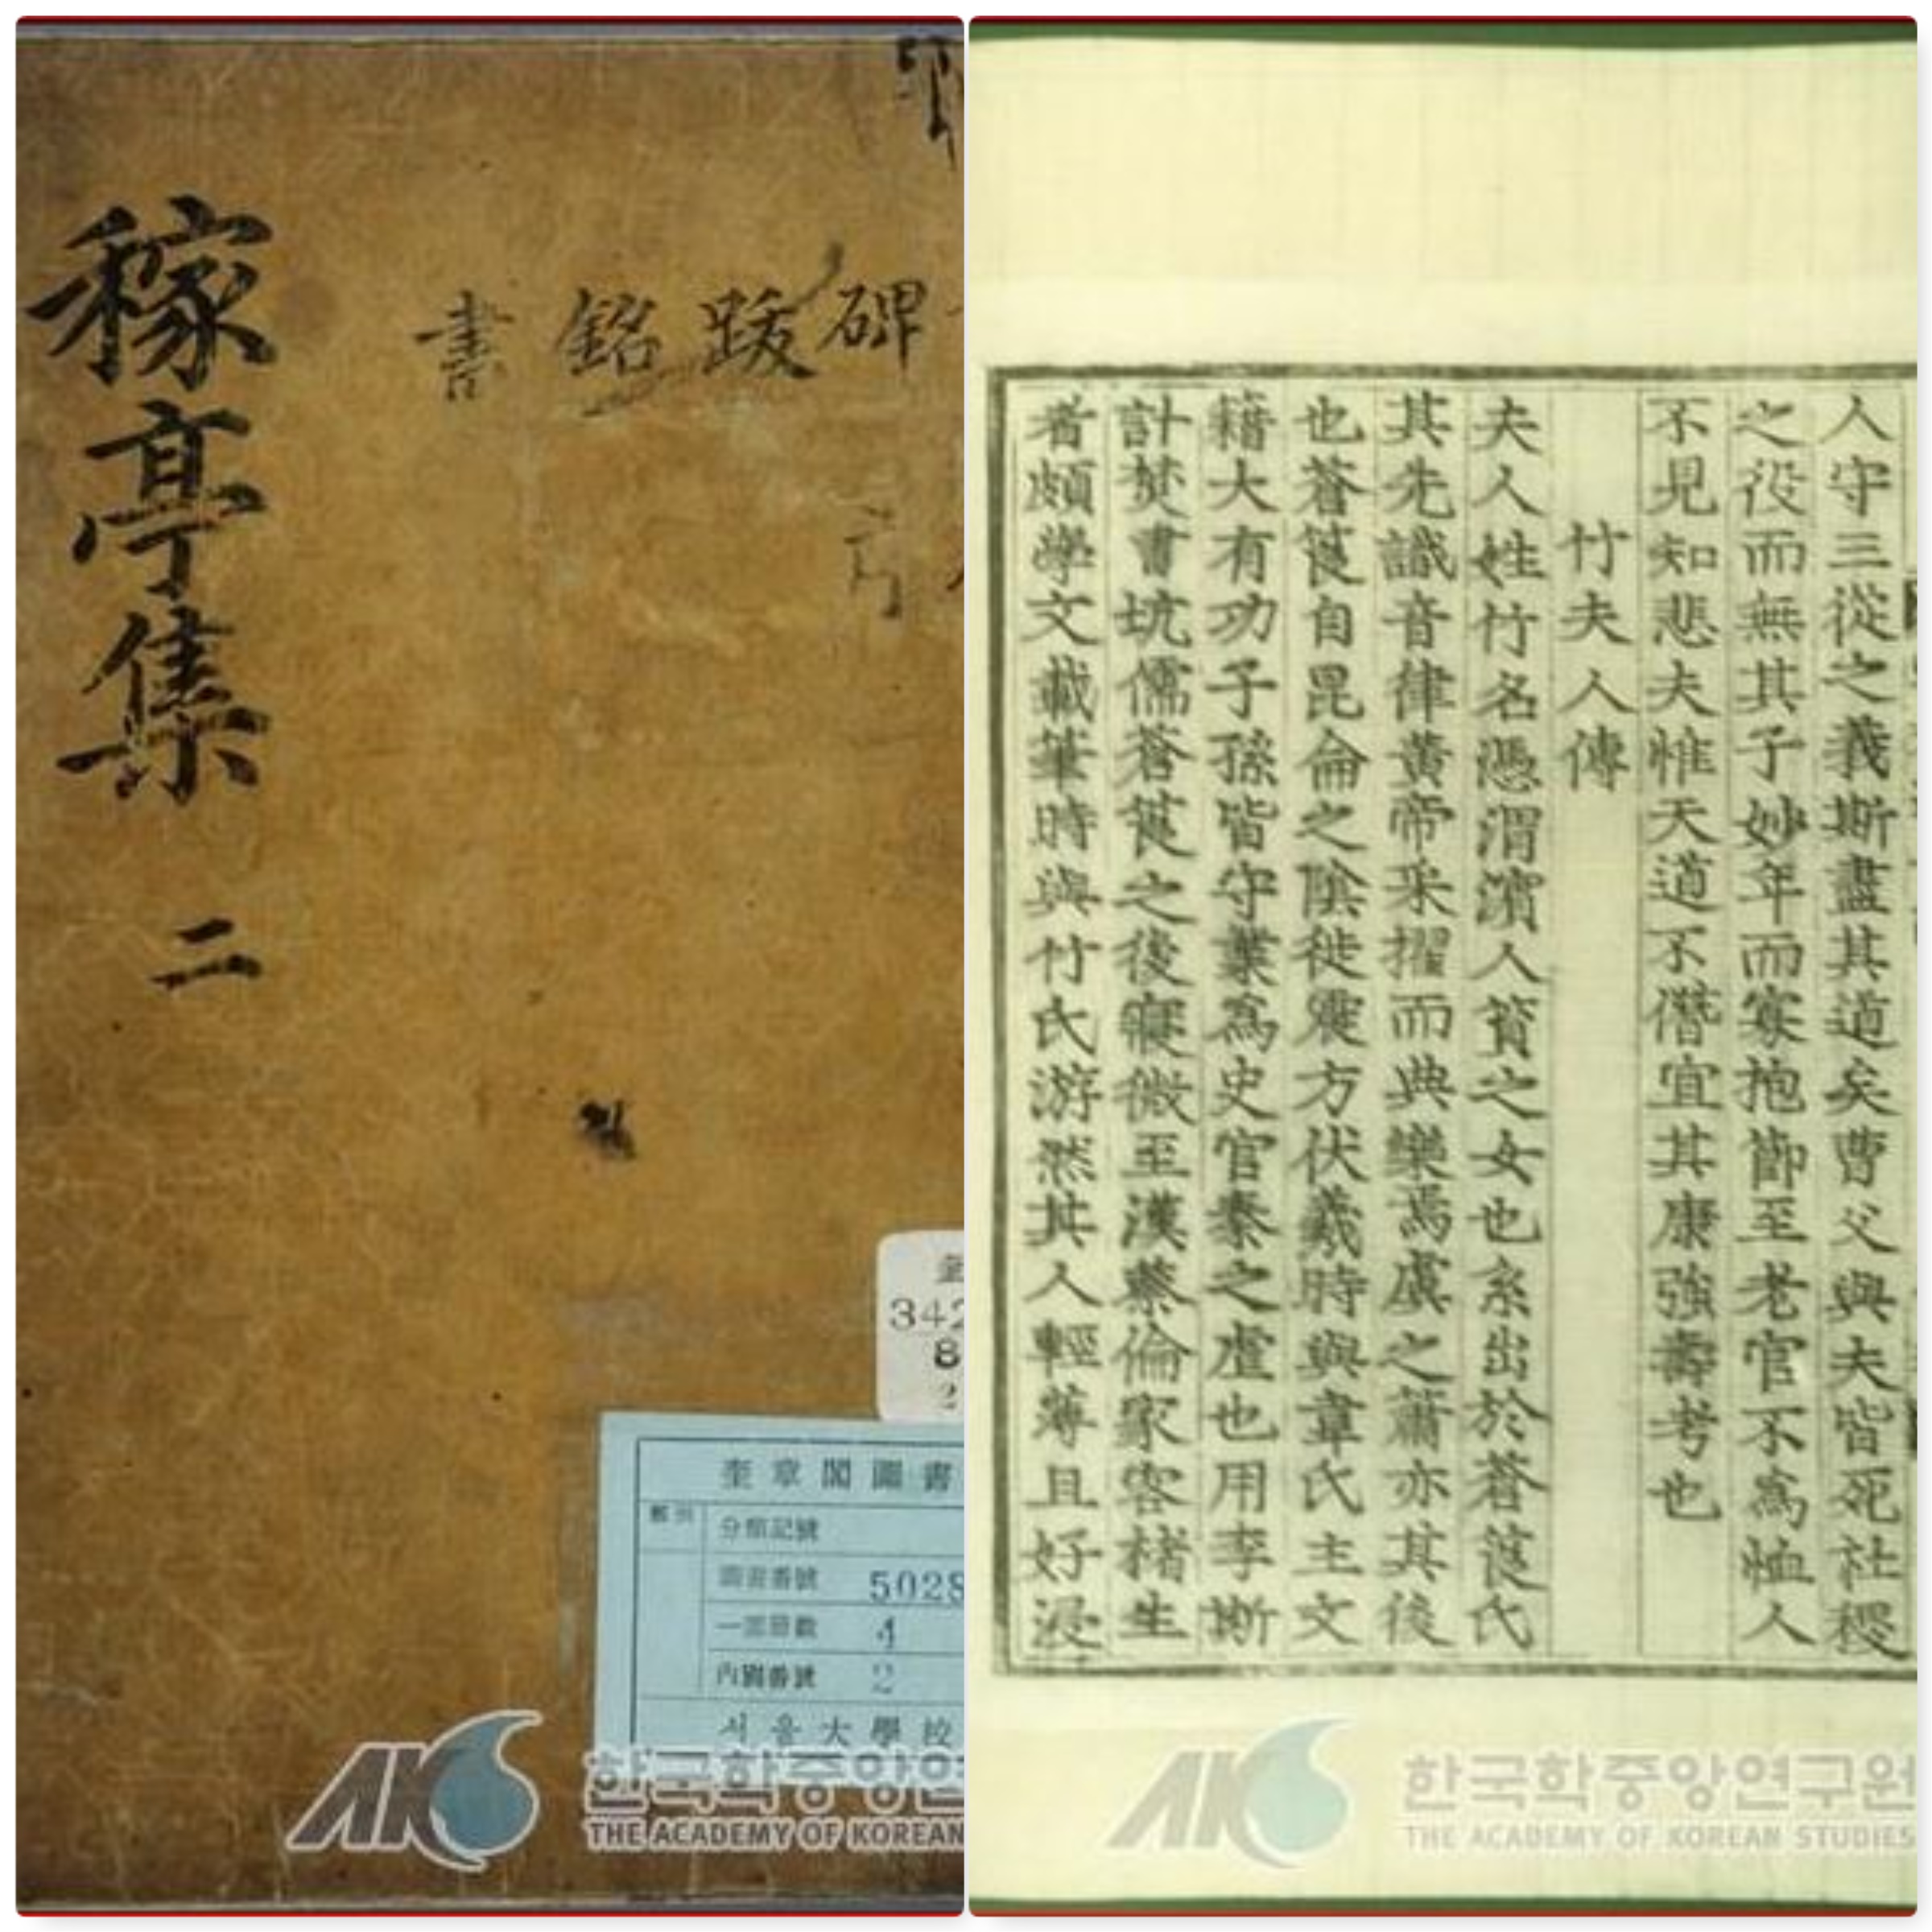 稼亭集 二
碑
跋
銘
書
342
8
2
奎章閣圖書
分類記號
圖書番號 5028
一部冊數 4
內別番號 2
서울大學校
한국학중앙연
THE ACADEMY OF KOREAN
人守三從之義斯盡其道矣曹父與夫皆死社稷
之役而無其子妙年而寡抱節至老官不爲恤人
不見知悲夫惟天道不僭宜其康強壽考也
竹夫人傳
夫人姓竹名憑渭濱人篔之女也系出於蒼筤氏
其先識音律黃帝采擢而典樂焉虞之簫亦其後
也蒼筤自昆侖之陰徙震方伏羲時與韋氏主文
籍大有功子孫皆守業爲史官秦之虐也用李斯
計焚書坑儒蒼筤之後寢微至漢蔡倫家客楮生
者頗學文載筆時與竹氏游然其人輕薄且好浸
한국학중앙연구원
THE ACADEMY OF KOREAN STUDIES